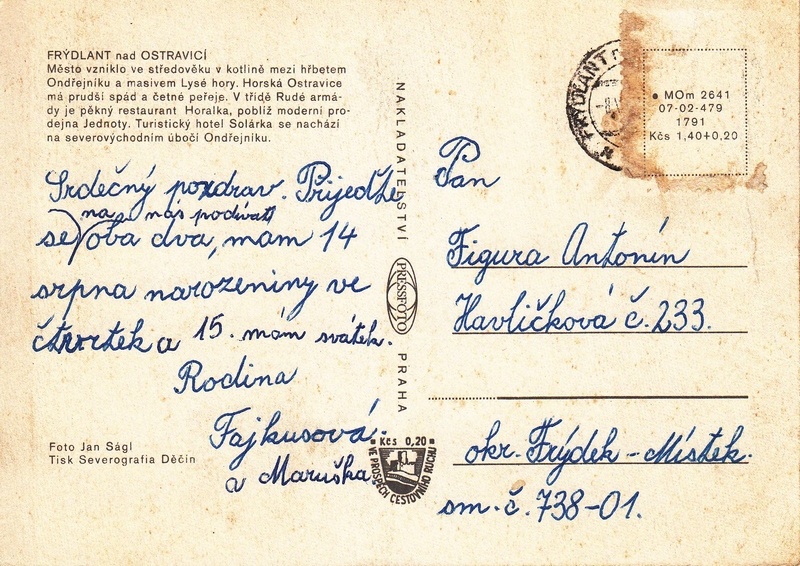 FRÝDLANT nad OSTRAVICÍ
Město vzniklo ve středověku v kotlině mezi hřbetem
Ondřejníku a masivem Lysé hory. Horská Ostravice
má prudší spád a četné peřeje. V třídě Rudé armá-
dy je pěkný restaurant Horalka, poblíž moderní pro-
dejna Jednoty. Turistický hotel Solárka se nachází
na severovýchodním úbočí Ondřejníku.
Srdečný pozdrav. Přijeďte
na nás podívat
se oba dva, mám 14
srpna narozeniny ve
čtvrtek a 15. mám svátek.
Rodina
Fajkusová
a Maruška
Foto Jan Ságl
Tisk Severografia Děčín
NAKLADATELSTVÍ
PRESSFOTO
PRAHA
Kčs 0,20
VE PROSPĚCH CESTOVNÍHO RUCHU
FRÝDLANT
MOm 2641
07-02-479
1791
Kčs 1,40+0,20
Pan
Figura Antonín
Havlíčková č. 233.
okr. Frýdek-Místek.
sm. č. 738-01.